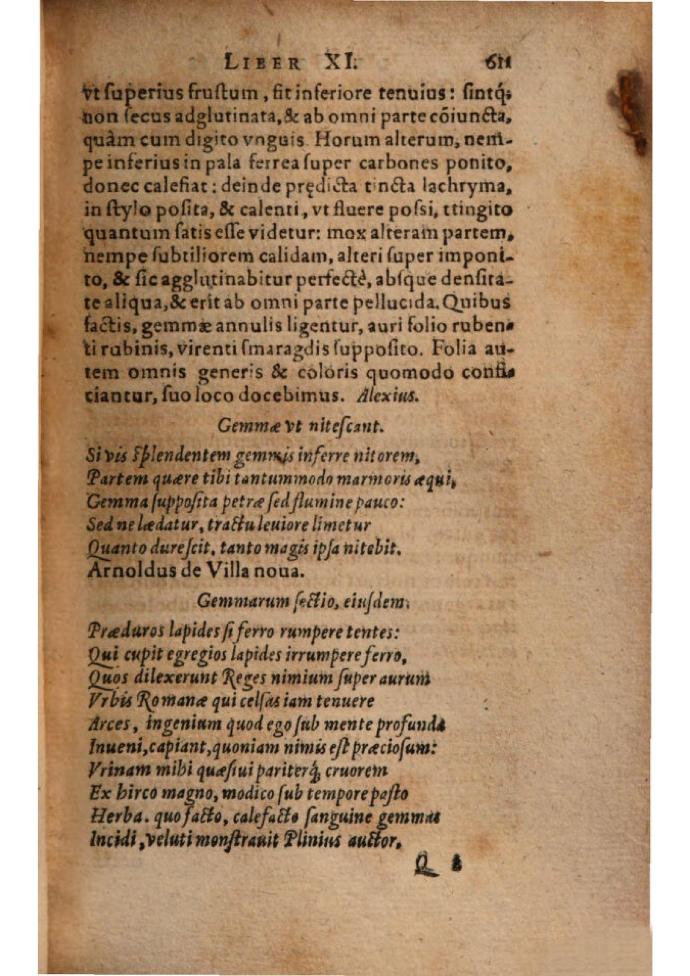 LIBER XI. 611
vt ſuperius fruſtum, fit inferiore tenuius: ſintq́;
non ſecus adglutinata, & ab omni parte cōiuncta,
quàm cum digito vnguis. Horum alterum, nem-
pe inferius in pala ferrea ſuper carbones ponito,
donec calefiat: deinde prędicta tincta lachryma,
in ſtylo poſita, & calenti, vt fluere poſsi, ttingito
quantum ſatis eſſe videtur: mox alteram partem,
nempe ſubtiliorem calidam, alteri ſuper imponi-
to, & ſic agglutinabitur perfectè, abſque denſita-
te aliqua, & erit ab omni parte pellucida. Quibus
factis, gemmæ annulis ligentur, auri folio ruben-
ti rubinis, virenti ſmaragdis ſuppoſito. Folia au-
tem omnis generis & coloris quomodo confi-
ciantur, ſuo loco docebimus. Alexius.
Gemmæ vt niteſcant.
Si vis ſplendentem gemmis inferre nitorem,
Partem quære tibi tantummodo marmoris æqui,
Gemma ſuppoſita petræ ſed flumine pauco:
Sed ne lædatur, tractu leuiore limetur
Quanto dureſcit, tanto magis ipſa nitebit.
Arnoldus de Villa noua.
Gemmarum ſectio, eiuſdem.
Præduros lapides ſi ferro rumpere tentes:
Qui cupit egregios lapides irrumpere ferro,
Quos dilexerunt Reges nimium ſuper aurum
Vrbis Romanæ qui celſas iam tenuere
Arces, ingenium quod ego ſub mente profunda
Inueni, capiant, quoniam nimis eſt præcioſum:
Vrinam mihi quæſiui pariterq́; cruorem
Ex hirco magno, modico ſub tempore paſto
Herba. quo facto, calefacto ſanguine gemmas
Incidi, veluti monſtrauit Plinius auctor,
Q